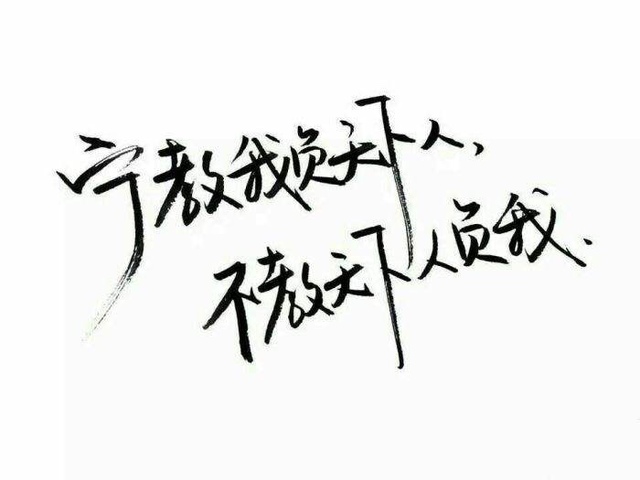 宁教我负天下人,
不教天下人负我.